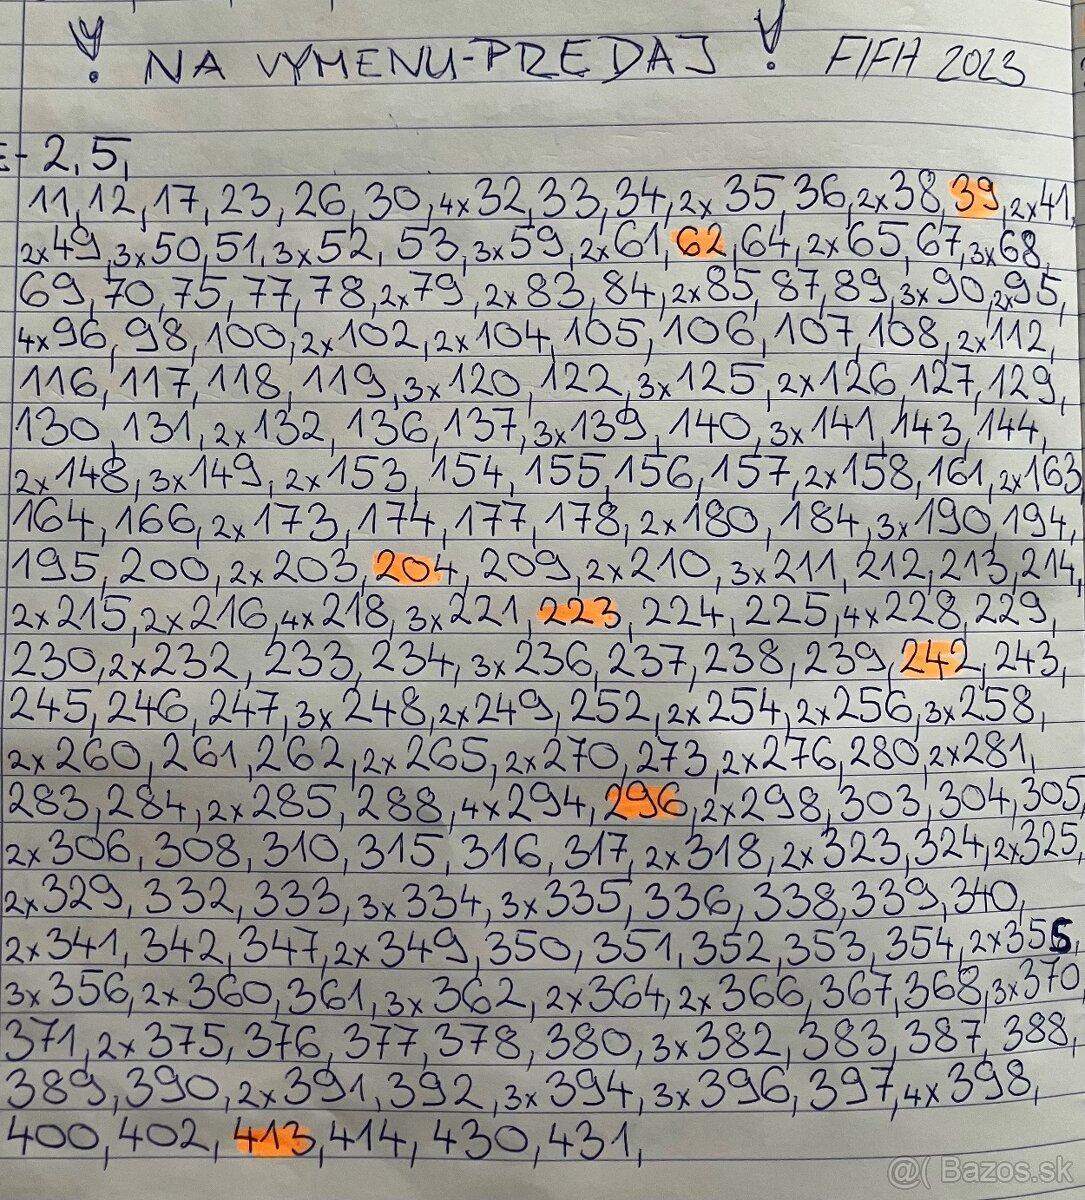 ! NA VYMENU-PREDAJ ! FIFA 2023
E- 2, 5,
11, 12, 17, 23, 26, 30, 4x32, 33, 34, 2x35, 36, 2x38, 39, 2x41,
2x49, 3x50, 51, 3x52, 53, 3x59, 2x61, 62, 64, 2x65, 67, 3x68,
69, 70, 75, 77, 78, 2x79, 2x83, 84, 2x85, 87, 89, 3x90, 2x95,
4x96, 98, 100, 2x102, 2x104, 105, 106, 107, 108, 2x112,
116, 117, 118, 119, 3x120, 122, 3x125, 2x126, 127, 129,
130, 131, 2x132, 136, 137, 3x139, 140, 3x141, 143, 144,
2x148, 3x149, 2x153, 154, 155, 156, 157, 2x158, 161, 2x163
164, 166, 2x173, 174, 177, 178, 2x180, 184, 3x190, 194,
195, 200, 2x203, 204, 209, 2x210, 3x211, 212, 213, 214,
2x215, 2x216, 4x218, 3x221, 223, 224, 225, 4x228, 229,
230, 2x232, 233, 234, 3x236, 237, 238, 239, 242, 243,
245, 246, 247, 3x248, 2x249, 252, 2x254, 2x256, 3x258,
2x260, 261, 262, 2x265, 2x270, 273, 2x276, 280, 2x281,
283, 284, 2x285, 288, 4x294, 296, 2x298, 303, 304, 305
2x306, 308, 310, 315, 316, 317, 2x318, 2x323, 324, 2x325,
2x329, 332, 333, 3x334, 3x335, 336, 338, 339, 340,
2x341, 342, 347, 2x349, 350, 351, 352, 353, 354, 2x355,
3x356, 2x360, 361, 3x362, 2x364, 2x366, 367, 368, 3x370
371, 2x375, 376, 377, 378, 380, 3x382, 383, 387, 388,
389, 390, 2x391, 392, 3x394, 3x396, 397, 4x398,
400, 402, 413, 414, 430, 431,
@( Bazos.sk